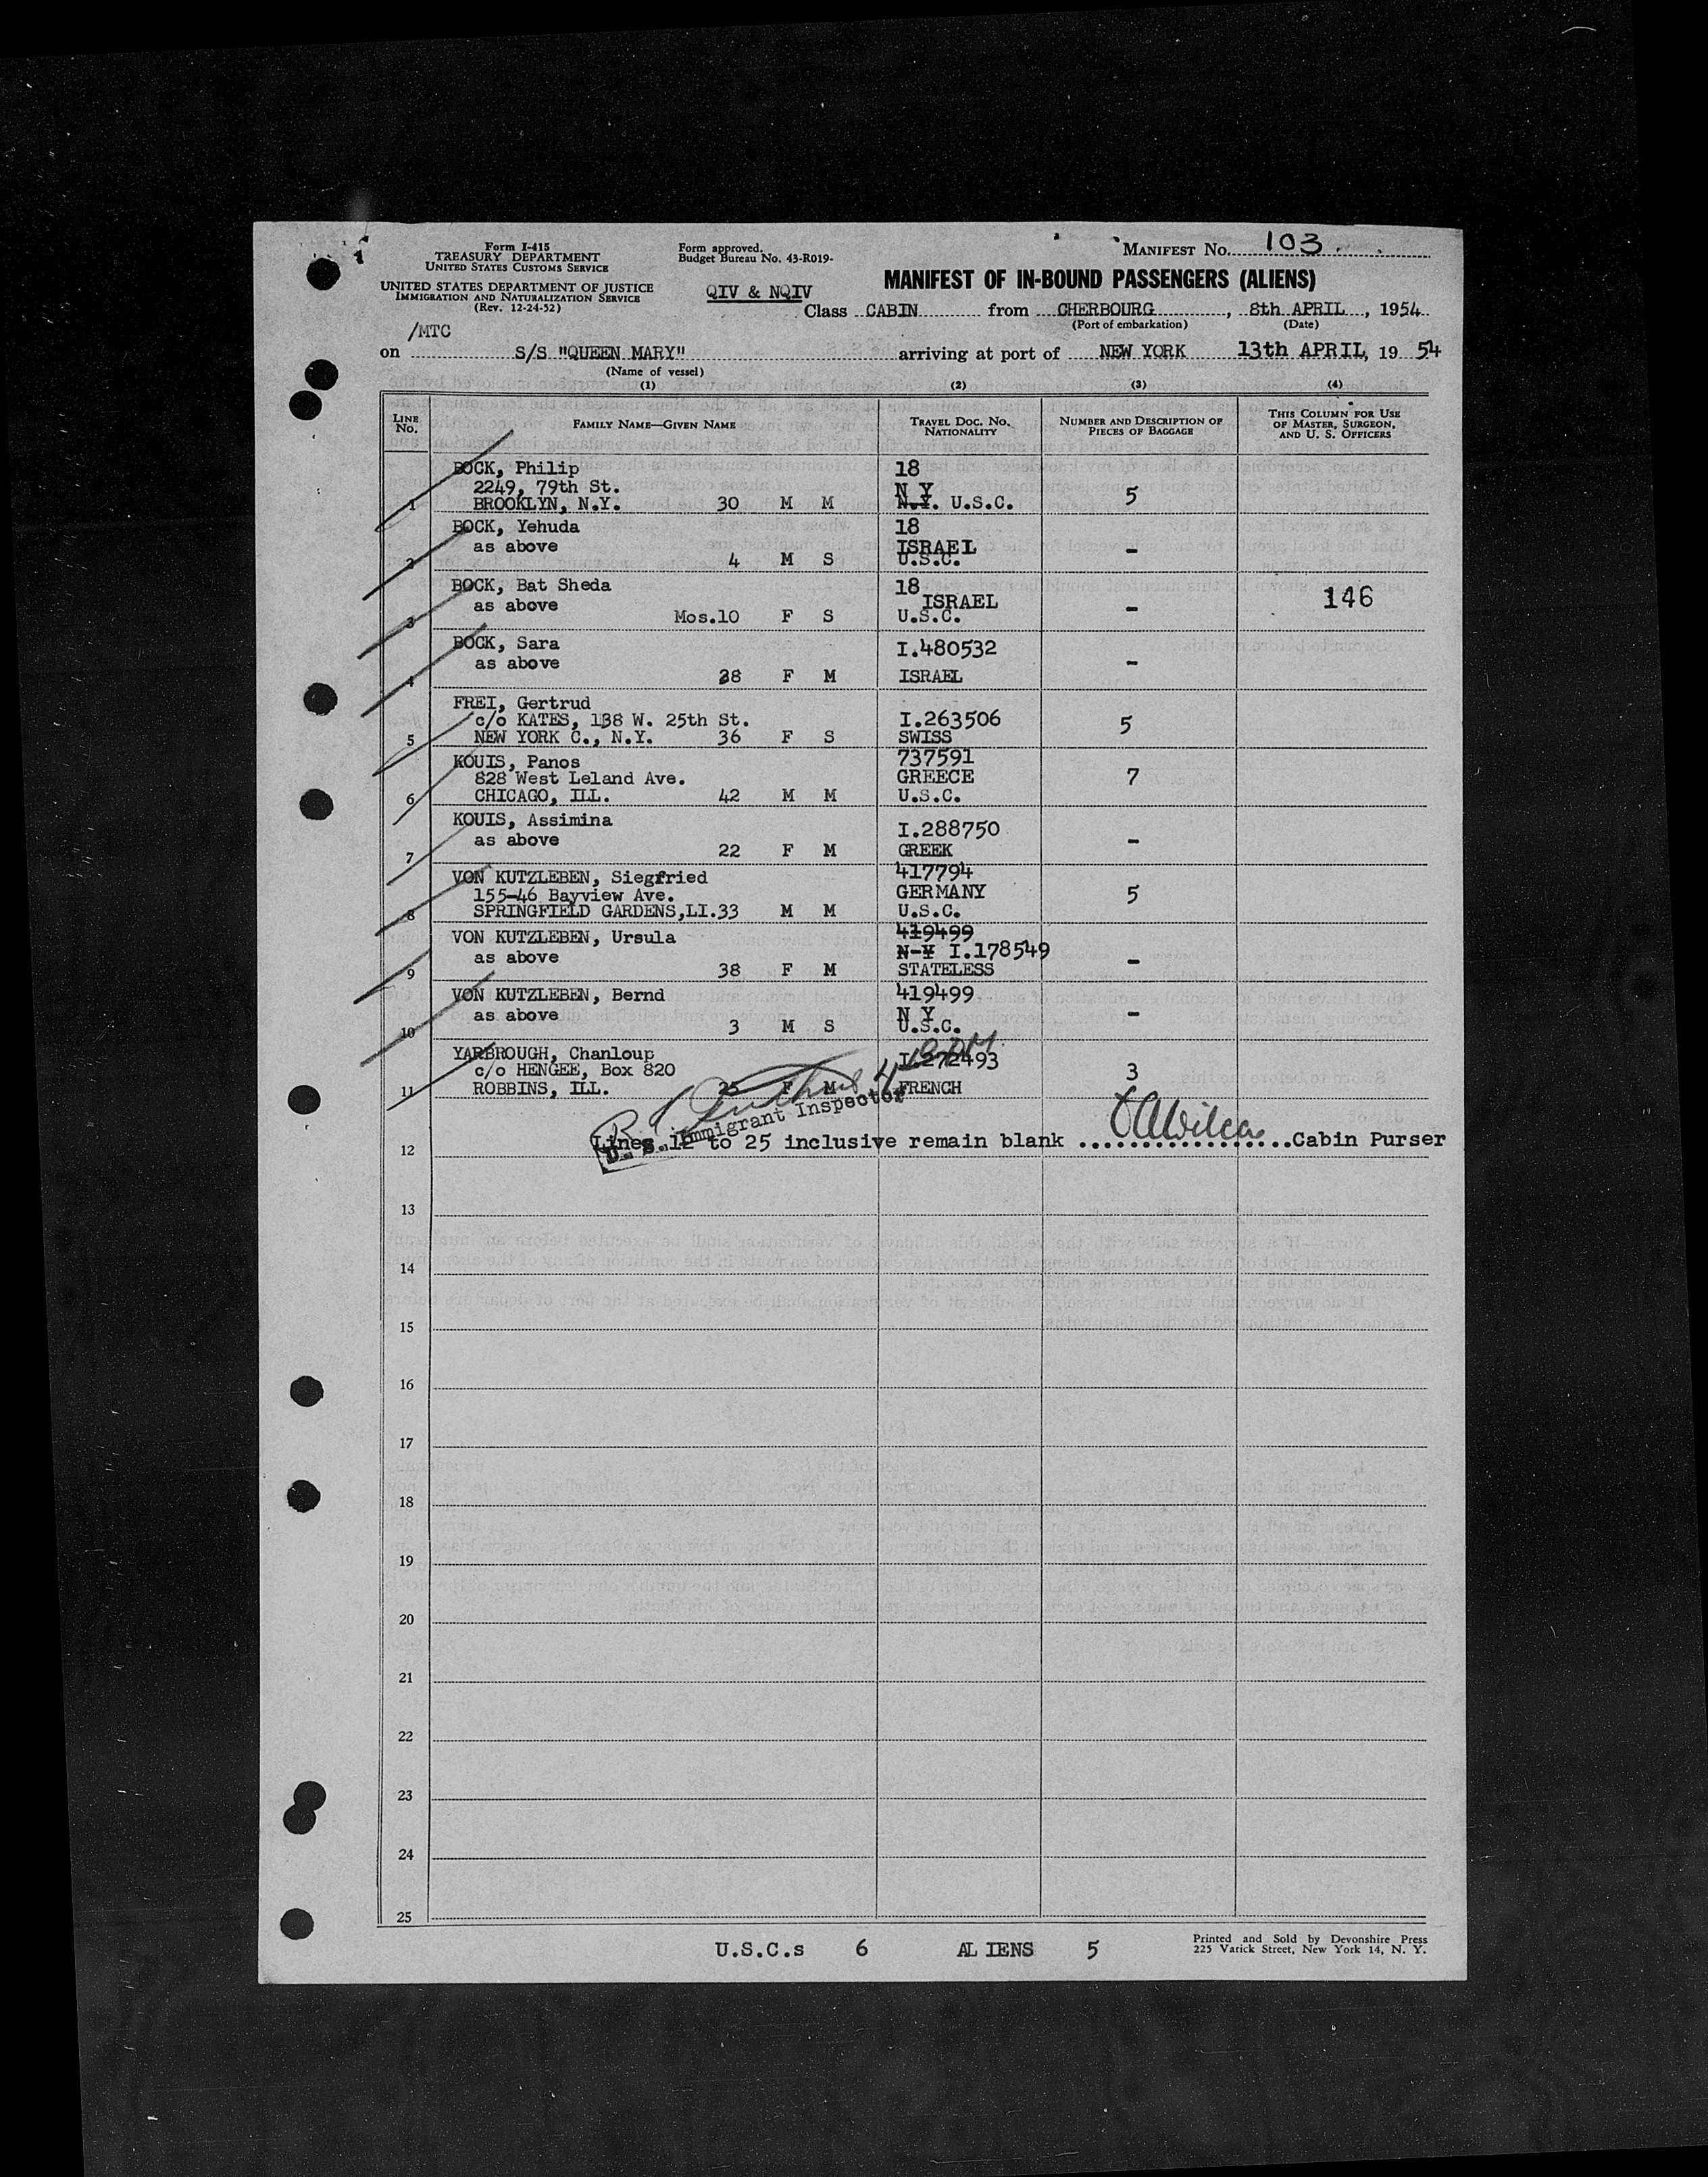 Form I-415
TREASURY DEPARTMENT
UNITED STATES CUSTOMS SERVICE
UNITED STATES DEPARTMENT OF JUSTICE
IMMIGRATION AND NATURALIZATION SERVICE
(Rev. 12-24-52)
Form approved.
Budget Bureau No. 43-R019-
QIV & NQIV
MANIFEST No. 103
MANIFEST OF IN-BOUND PASSENGERS (ALIENS)
Class CABIN from CHERBOURG, 8th APRIL, 1954
(Port of embarkation) (Date)
/MTC
on S/S "QUEEN MARY" arriving at port of NEW YORK 13th APRIL, 19 54
(Name of vessel)
(1) (2) (3) (4)
LINE No. FAMILY NAME—GIVEN NAME TRAVEL DOC. No. NATIONALITY NUMBER AND DESCRIPTION OF PIECES OF BAGGAGE THIS COLUMN FOR USE OF MASTER, SURGEON, AND U. S. OFFICERS
BOCK, Philip 18
2249, 79th St. N Y
1 BROOKLYN, N.Y. 30 M M N.Y. U.S.C. 5
BOCK, Yehuda 18
as above ISRAEL
2 4 M S U.S.C. -
BOCK, Bat Sheda 18
as above ISRAEL 146
3 Mos.10 F S U.S.C. -
BOCK, Sara I.480532
as above -
4 38 F M ISRAEL
FREI, Gertrud
c/o KATES, 138 W. 25th St. I.263506 5
5 NEW YORK C., N.Y. 36 F S SWISS
KOUIS, Panos 737591
828 West Leland Ave. GREECE 7
6 CHICAGO, ILL. 42 M M U.S.C.
KOUIS, Assimina I.288750
as above -
7 22 F M GREEK
VON KUTZLEBEN, Siegfried 417794
155-46 Bayview Ave. GERMANY 5
8 SPRINGFIELD GARDENS,LI.33 M M U.S.C.
VON KUTZLEBEN, Ursula 419499
as above N-Y I.178549 -
9 38 F M STATELESS
VON KUTZLEBEN, Bernd 419499
as above N Y -
10 3 M S U.S.C.
YARBROUGH, Chanloup I.272493
c/o HENGEE, Box 820 3
11 ROBBINS, ILL. 25 F M FRENCH
U. S. Immigrant Inspector
12 Lines 12 to 25 inclusive remain blank ..................Cabin Purser
13
14
15
16
17
18
19
20
21
22
23
24
25
U.S.C.s 6 ALIENS 5
Printed and Sold by Devonshire Press
225 Varick Street, New York 14, N. Y.